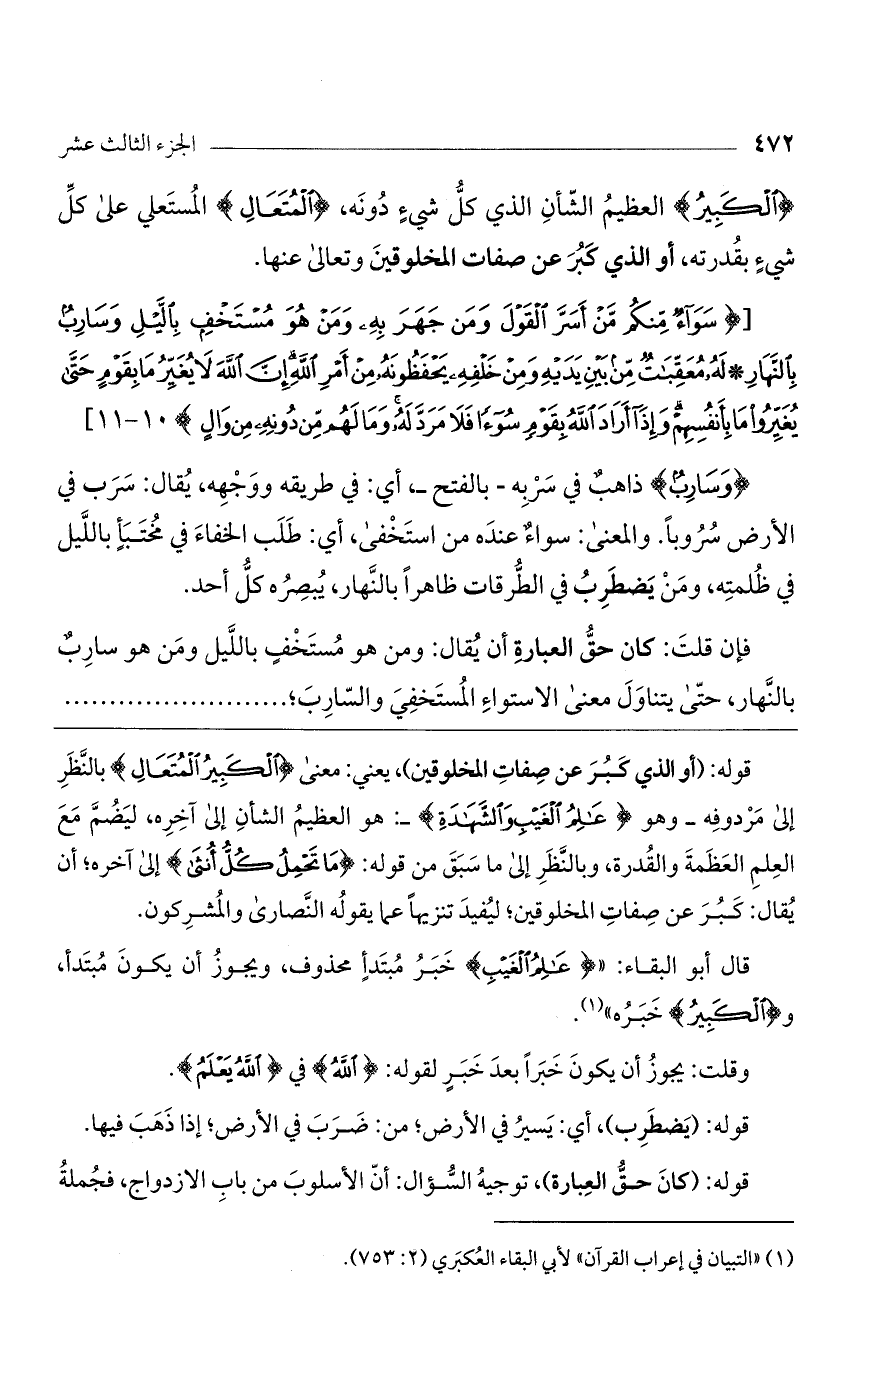 ٤٧٢ ــــــــــــــــ الجزء الثالث عشر
﴿ٱلْكَبِيرُ﴾ العظيمُ الشّأنِ الذي كلُّ شيءٍ دُونَه، ﴿ٱلْمُتَعَالِ﴾ المُستَعلي علىٰ كلِّ
شيءٍ بقُدرته، أو الذي كَبُرَ عن صفات المخلوقينَ وتعالىٰ عنها.
[﴿سَوَآءٌ مِّنكُم مَّنْ أَسَرَّ ٱلْقَوْلَ وَمَن جَهَرَ بِهِۦ وَمَنْ هُوَ مُسْتَخْفٍ بِٱلَّيْلِ وَسَارِبٌۢ
بِٱلنَّهَارِ * لَهُۥ مُعَقِّبَٰتٌ مِّنۢ بَيْنِ يَدَيْهِ وَمِنْ خَلْفِهِۦ يَحْفَظُونَهُۥ مِنْ أَمْرِ ٱللَّهِ ۗ إِنَّ ٱللَّهَ لَا يُغَيِّرُ مَا بِقَوْمٍ حَتَّىٰ
يُغَيِّرُوا۟ مَا بِأَنفُسِهِمْ ۗ وَإِذَآ أَرَادَ ٱللَّهُ بِقَوْمٍ سُوٓءًا فَلَا مَرَدَّ لَهُۥ ۚ وَمَا لَهُم مِّن دُونِهِۦ مِن وَالٍ﴾ ١٠-١١]
﴿وَسَارِبٌۢ﴾ ذاهبٌ في سَرْبِه - بالفتح -، أي: في طريقه ووَجْهِه، يُقال: سَرَب في
الأرض سُرُوباً. والمعنىٰ: سواءٌ عندَه من استَخْفىٰ، أي: طَلَب الخفاءَ في مُختَبَأٍ بالليل
في ظُلمتِه، ومَنْ يَضطَرِبُ في الطُّرقات ظاهراً بالنَّهار، يُبصِرُه كلُّ أحد.
فإن قلتَ: كان حقُّ العبارةِ أن يُقال: ومن هو مُستَخْفٍ بالليل ومَن هو ساربٌ
بالنَّهار، حتّىٰ يتناوَلَ معنىٰ الاستواءِ المُستَخفِيَ والسّاربَ؛........................
قوله: (أو الذي كَبُرَ عن صِفاتِ المخلوقين)، يعني: معنىٰ ﴿ٱلْكَبِيرُ ٱلْمُتَعَالِ﴾ بالنَّظَرِ
إلىٰ مَرْدوفِه - وهو ﴿عَٰلِمُ ٱلْغَيْبِ وَٱلشَّهَٰدَةِ﴾ -: هو العظيمُ الشأنِ إلىٰ آخِرِه، ليَضُمَّ مَعَ
العِلمِ العَظَمةَ والقُدرة، وبالنَّظَرِ إلىٰ ما سَبَقَ من قوله: ﴿مَا تَحْمِلُ كُلُّ أُنثَىٰ﴾ إلىٰ آخره؛ أن
يُقال: كَبُرَ عن صِفاتِ المخلوقين؛ ليُفيدَ تنزيهاً عما يقولُه النَّصارىٰ والمُشركون.
قال أبو البقاء: «﴿عَٰلِمُ ٱلْغَيْبِ﴾ خَبَرُ مُبتَدأٍ محذوف، ويجوزُ أن يكونَ مُبتَدأ،
و﴿ٱلْكَبِيرُ﴾ خَبَرُه»(١).
وقلت: يجوزُ أن يكونَ خَبَراً بعدَ خَبَرٍ لقوله: ﴿ٱللَّهُ﴾ في ﴿ٱللَّهُ يَعْلَمُ﴾.
قوله: (يَضطَرِب)، أي: يَسيرُ في الأرض؛ من: ضَرَبَ في الأرض؛ إذا ذَهَبَ فيها.
قوله: (كانَ حقُّ العِبارة)، توجيهُ السُّؤال: أنّ الأسلوبَ من بابِ الازدواج، فجُملةُ
(١) «التبيان في إعراب القرآن» لأبي البقاء العُكبَري (٢: ٧٥٣).